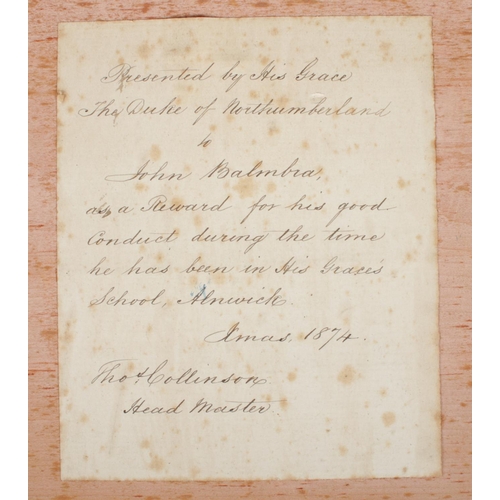 Presented by His Grace
The Duke of Northumberland
to
John Balmbra,
as a Reward for his good
Conduct during the time
he has been in His Grace's
School, Alnwick.
Xmas. 1874.
Thos. Collinson
Head Master